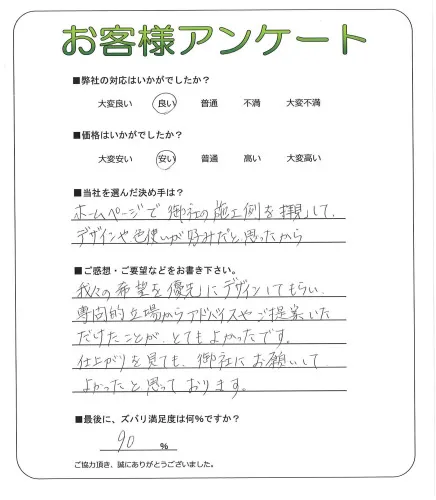 お客様アンケート
■弊社の対応はいかがでしたか？
大変良い 良い 普通 不満 大変不満
■価格はいかがでしたか？
大変安い 安い 普通 高い 大変高い
■当社を選んだ決め手は？
ホームページで御社の施工例を拝見して、
デザインや色使いが好みだと思ったから
■ご感想・ご要望などをお書き下さい。
我々の希望を優先にデザインしてもらい、
専門的立場からアドバイスやご提案いた
だけたことが、とてもよかったです。
仕上がりを見ても、御社にお願いして
よかったと思っております。
■最後に、ズバリ満足度は何％ですか？
90 ％
ご協力頂き、誠にありがとうございました。